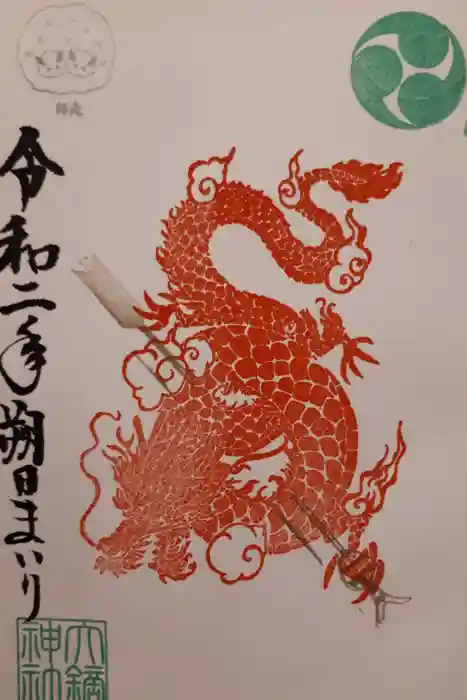 師走
令和二年朔日まいり
大鏑
神社